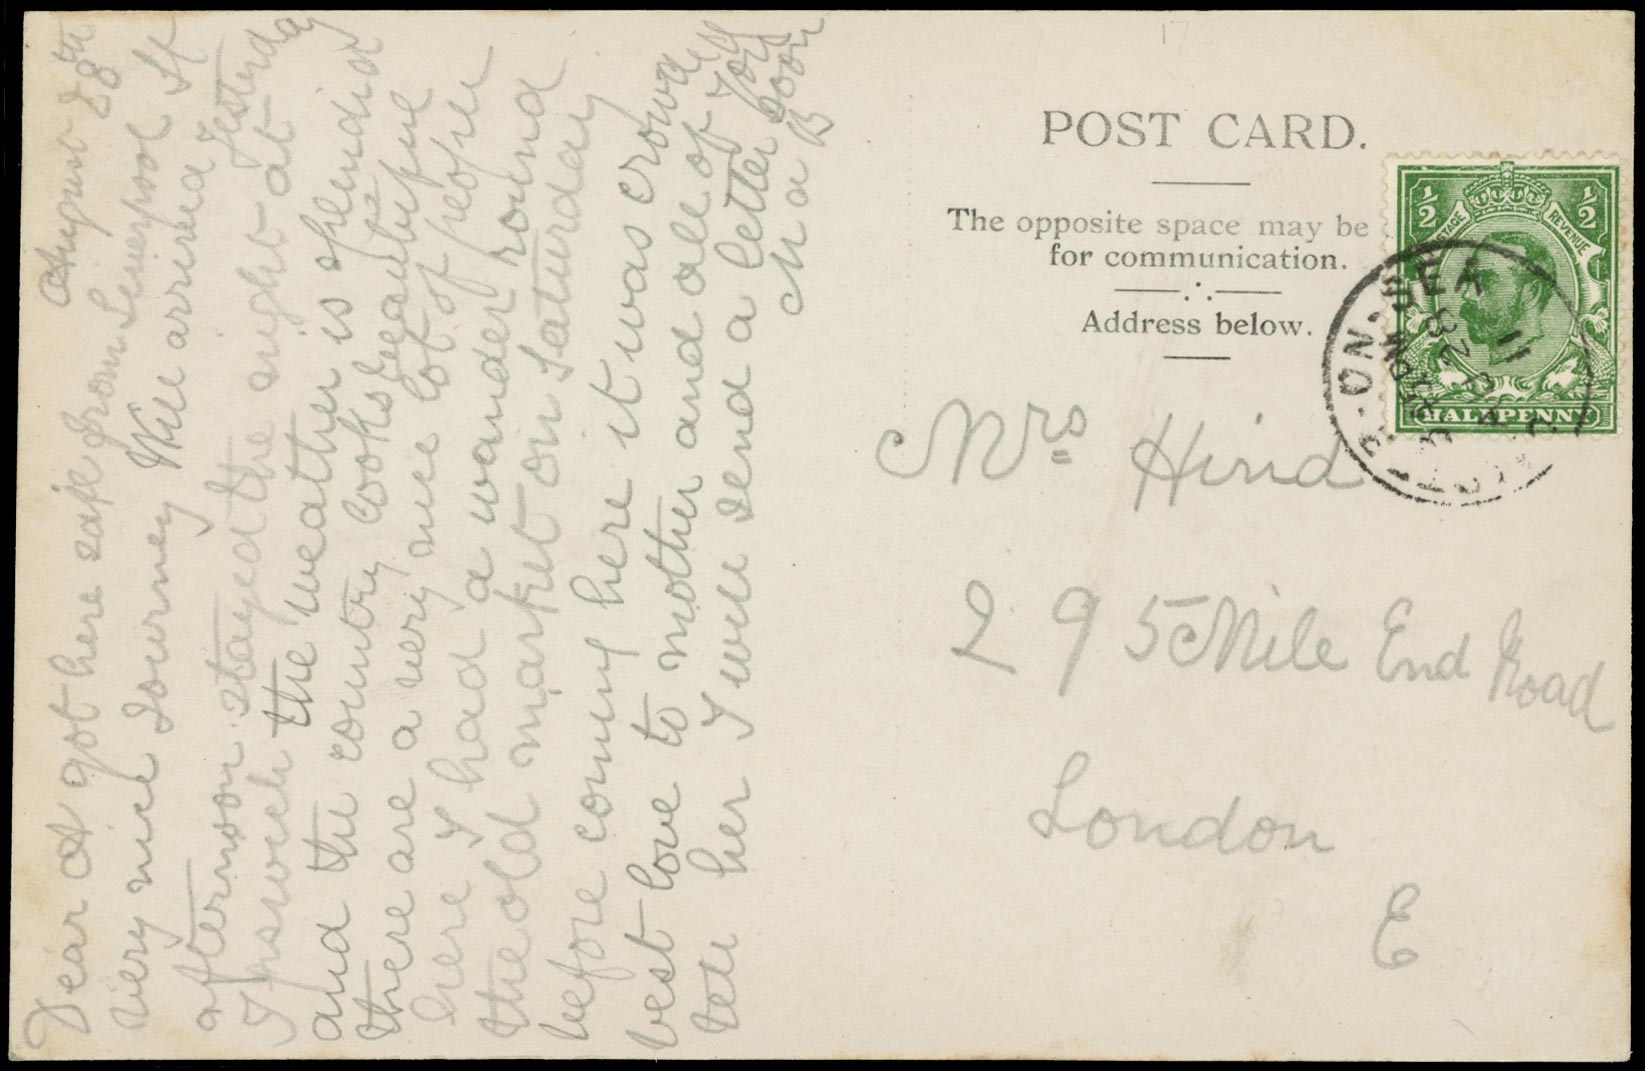 August 28th
Dear A got here safe from Liverpool St
very nice Journey Will arrived yesterday
afternoon stayed the night at
Ipswich the weather is splendid
and the country looks beautiful
there are a very nice lot of people
here I had a wander round
the old market on Saturday
before coming here it was crowded
best love to mother and all of you
tell her I will send a letter soon
M a B
POST CARD.
The opposite space may be
for communication.
Address below.
Mrs Hind
295 Mile End Road
London
E
1/2
1/2
POSTAGE
REVENUE
HALFPENNY
ON-SEA
11